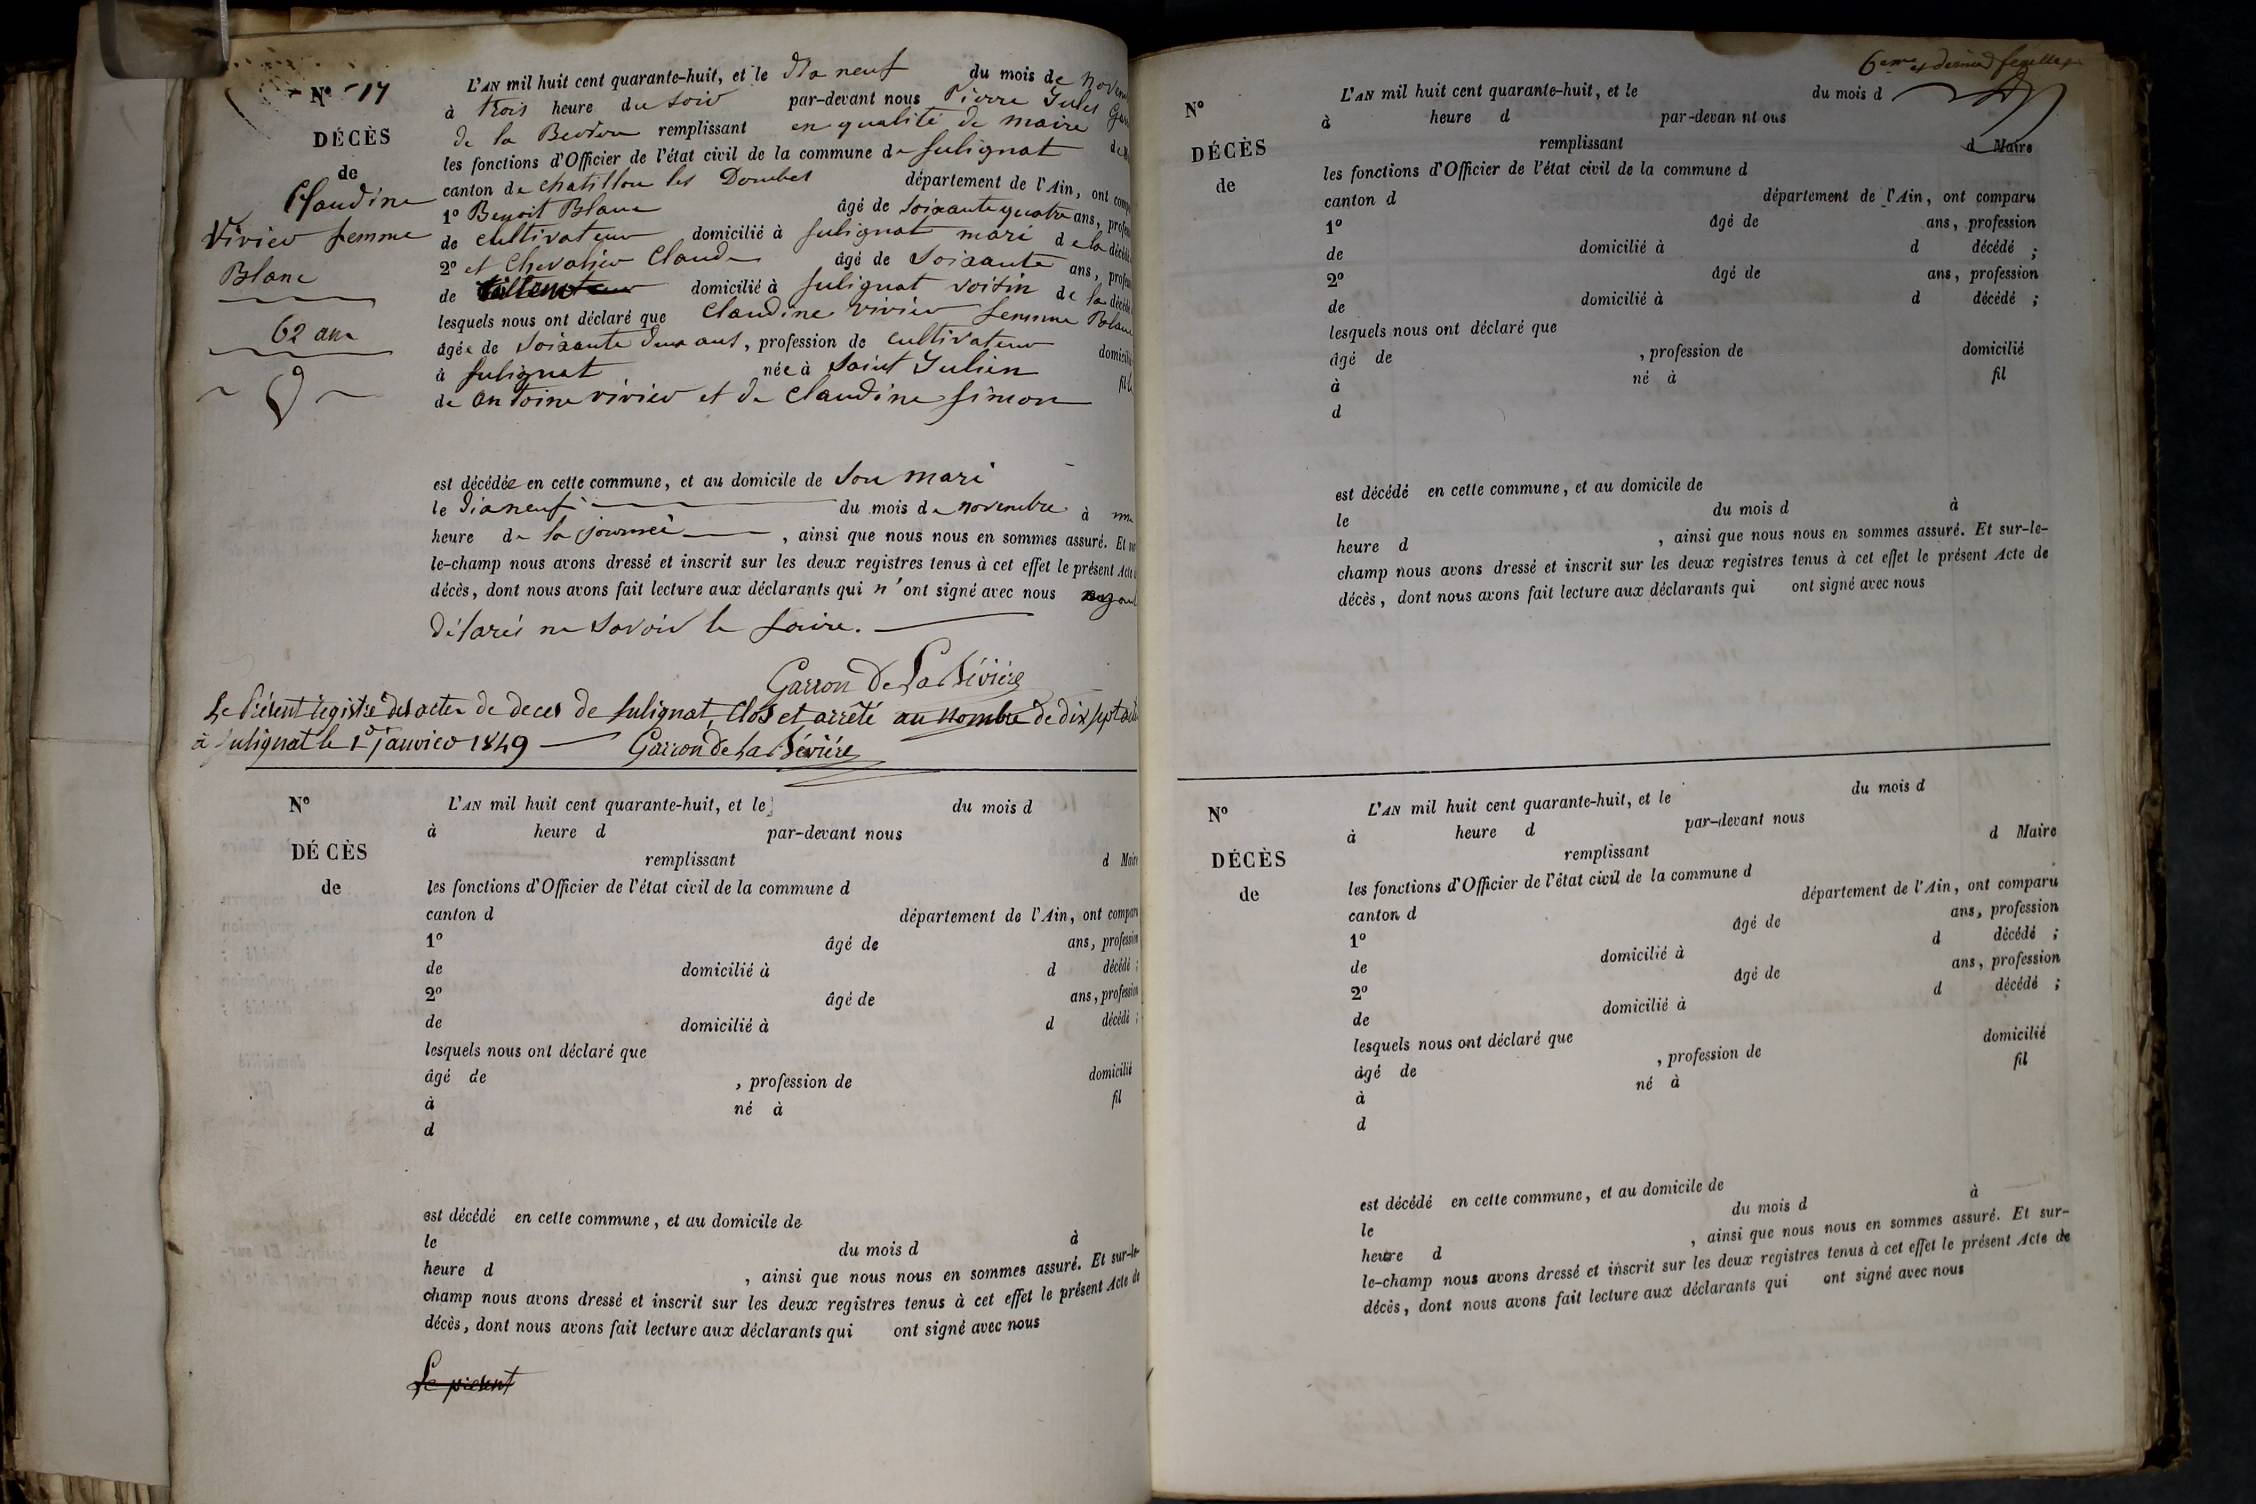 N° 17
DÉCÈS
de
Claudine
Vivier femme
Blanc
62 ans
L'AN mil huit cent quarante-huit, et le dix neuf du mois de Novem
à trois heure du soir par-devant nous Pierre Jules Gar
de la remplissant en qualité de maire de M
les fonctions d'Officier de l'état civil de la commune de Sulignat
canton de chatillon les Dombes département de l'Ain, ont comp
1° Benoit Blanc âgé de soixante quatre ans, profes
de cultivateur domicilié à Sulignat mari de la décédé
2° et Chevalier Claude âgé de soixante ans, profes
de domicilié à Sulignat voisin de la décédé
lesquels nous ont déclaré que Claudine vivier femme Blanc
âgée de soixante deux ans, profession de cultivateur domicilié
à Sulignat née à Saint Julien fille
de antoine vivier et de Claudine Simon
est décédée en cette commune, et au domicile de son mari
le dix neuf du mois de novembre à une
heure de la journée , ainsi que nous nous en sommes assuré. Et sur
le-champ nous avons dressé et inscrit sur les deux registres tenus à cet effet le présent Acte d
décès, dont nous avons fait lecture aux déclarants qui n'ont signé avec nous ayant
déclaré ne savoir le faire.
Garron De La Bévière
Le Présent registre des actes de deces de Sulignat, Clos et arrêté au nombre de dix sept actes
à Sulignat le 1er Janvier 1849 Garron De La Bévière
N°
DÉCÈS
de
L'AN mil huit cent quarante-huit, et le du mois d
à heure d par-devant nous
remplissant d Maire
les fonctions d'Officier de l'état civil de la commune d
canton d département de l'Ain, ont comparu
1° âgé de ans, profession
de domicilié à d décédé ;
2° âgé de ans, profession
de domicilié à d décédé ;
lesquels nous ont déclaré que
âgé de , profession de domicilié
à né à fil
d
est décédé en cette commune, et au domicile de
le du mois d à
heure d , ainsi que nous nous en sommes assuré. Et sur-le-
champ nous avons dressé et inscrit sur les deux registres tenus à cet effet le présent Acte de
décès, dont nous avons fait lecture aux déclarants qui ont signé avec nous
Le présent
6eme et dernier feuillet
N°
DÉCÈS
de
L'AN mil huit cent quarante-huit, et le du mois d
à heure d par-devan nt ous
remplissant d Maire
les fonctions d'Officier de l'état civil de la commune d
canton d département de l'Ain, ont comparu
1° âgé de ans, profession
de domicilié à d décédé ;
2° âgé de ans, profession
de domicilié à d décédé ;
lesquels nous ont déclaré que
âgé de , profession de domicilié
à né à fil
d
est décédé en cette commune, et au domicile de
le du mois d à
heure d , ainsi que nous nous en sommes assuré. Et sur-le-
champ nous avons dressé et inscrit sur les deux registres tenus à cet effet le présent Acte de
décès, dont nous avons fait lecture aux déclarants qui ont signé avec nous
N°
DÉCÈS
de
L'AN mil huit cent quarante-huit, et le du mois d
à heure d par-devant nous
remplissant d Maire
les fonctions d'Officier de l'état civil de la commune d
canton d département de l'Ain, ont comparu
1° âgé de ans, profession
de domicilié à d décédé ;
2° âgé de ans, profession
de domicilié à d décédé ;
lesquels nous ont déclaré que
âgé de , profession de domicilié
à né à fil
d
est décédé en cette commune, et au domicile de
le du mois d à
heure d , ainsi que nous nous en sommes assuré. Et sur-
le-champ nous avons dressé et inscrit sur les deux registres tenus à cet effet le présent Acte de
décès, dont nous avons fait lecture aux déclarants qui ont signé avec nous